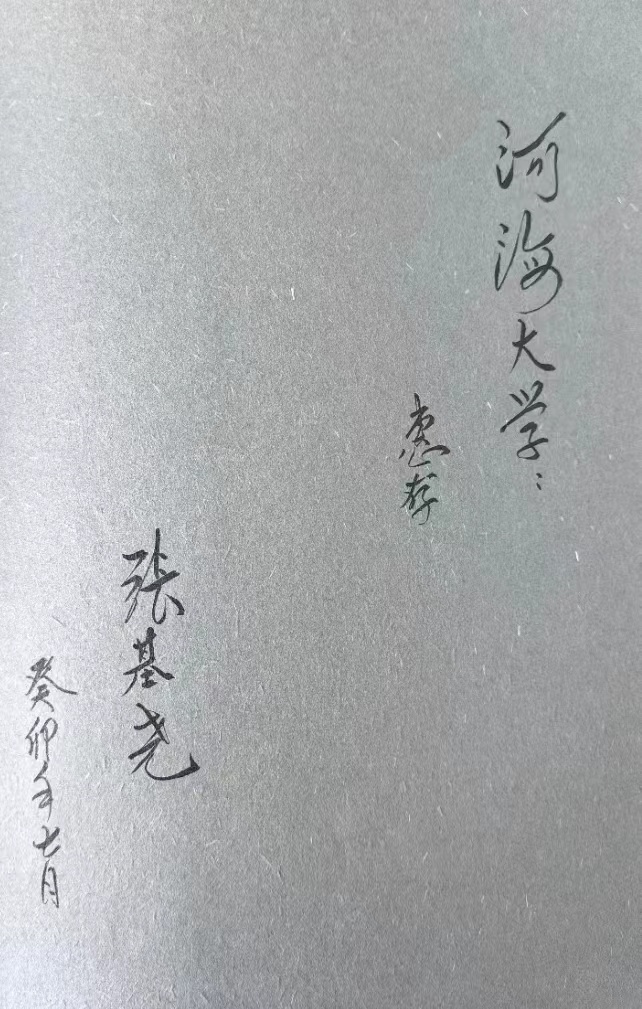 河海大学：
惠存
張基尧
癸卯年七月